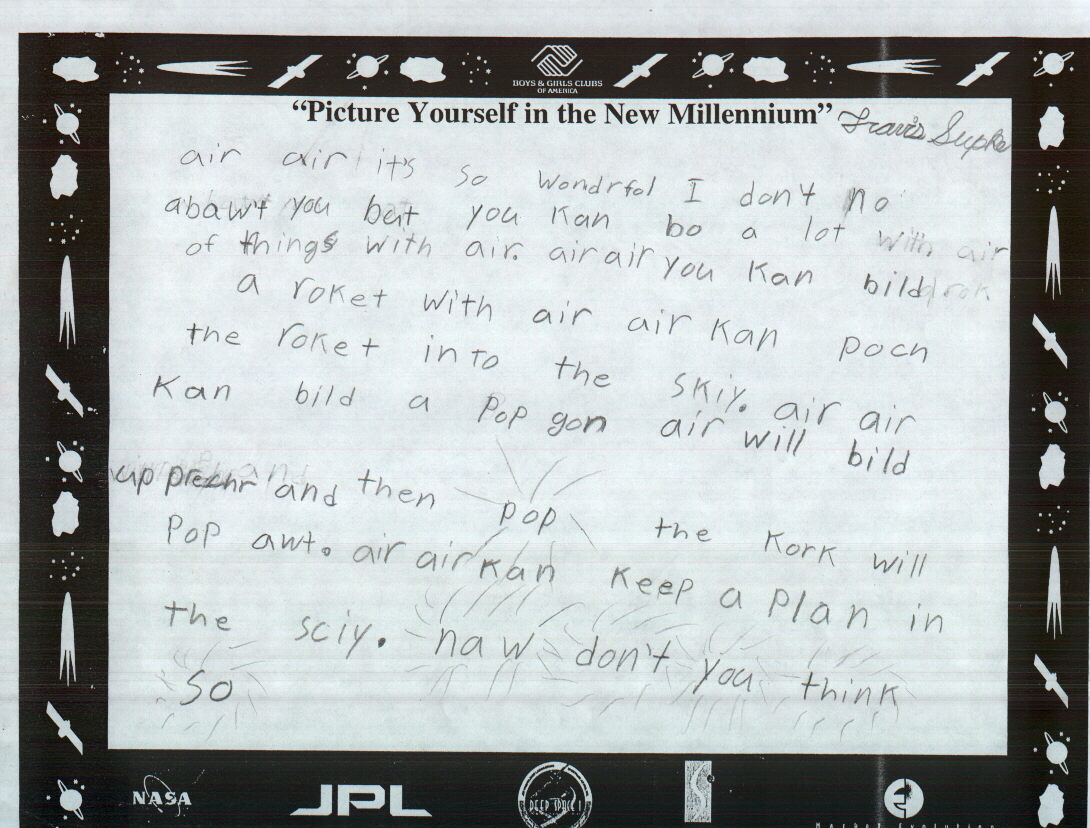 BOYS & GIRLS CLUBS
OF AMERICA
“Picture Yourself in the New Millennium”
Travis
air air it's so wondrful I don't no
abawt you but you kan bo a lot with air
of things with air. air air you kan bild
a roket with air air kan poch
the roket into the skiy. air air
kan bild a pop gon air will bild
up and then pop the kork will
pop awt. air air kan keep a plan in
the sciy. naw don't you think
so
NASA
JPL
DEEP SPACE 1
Market Evolution